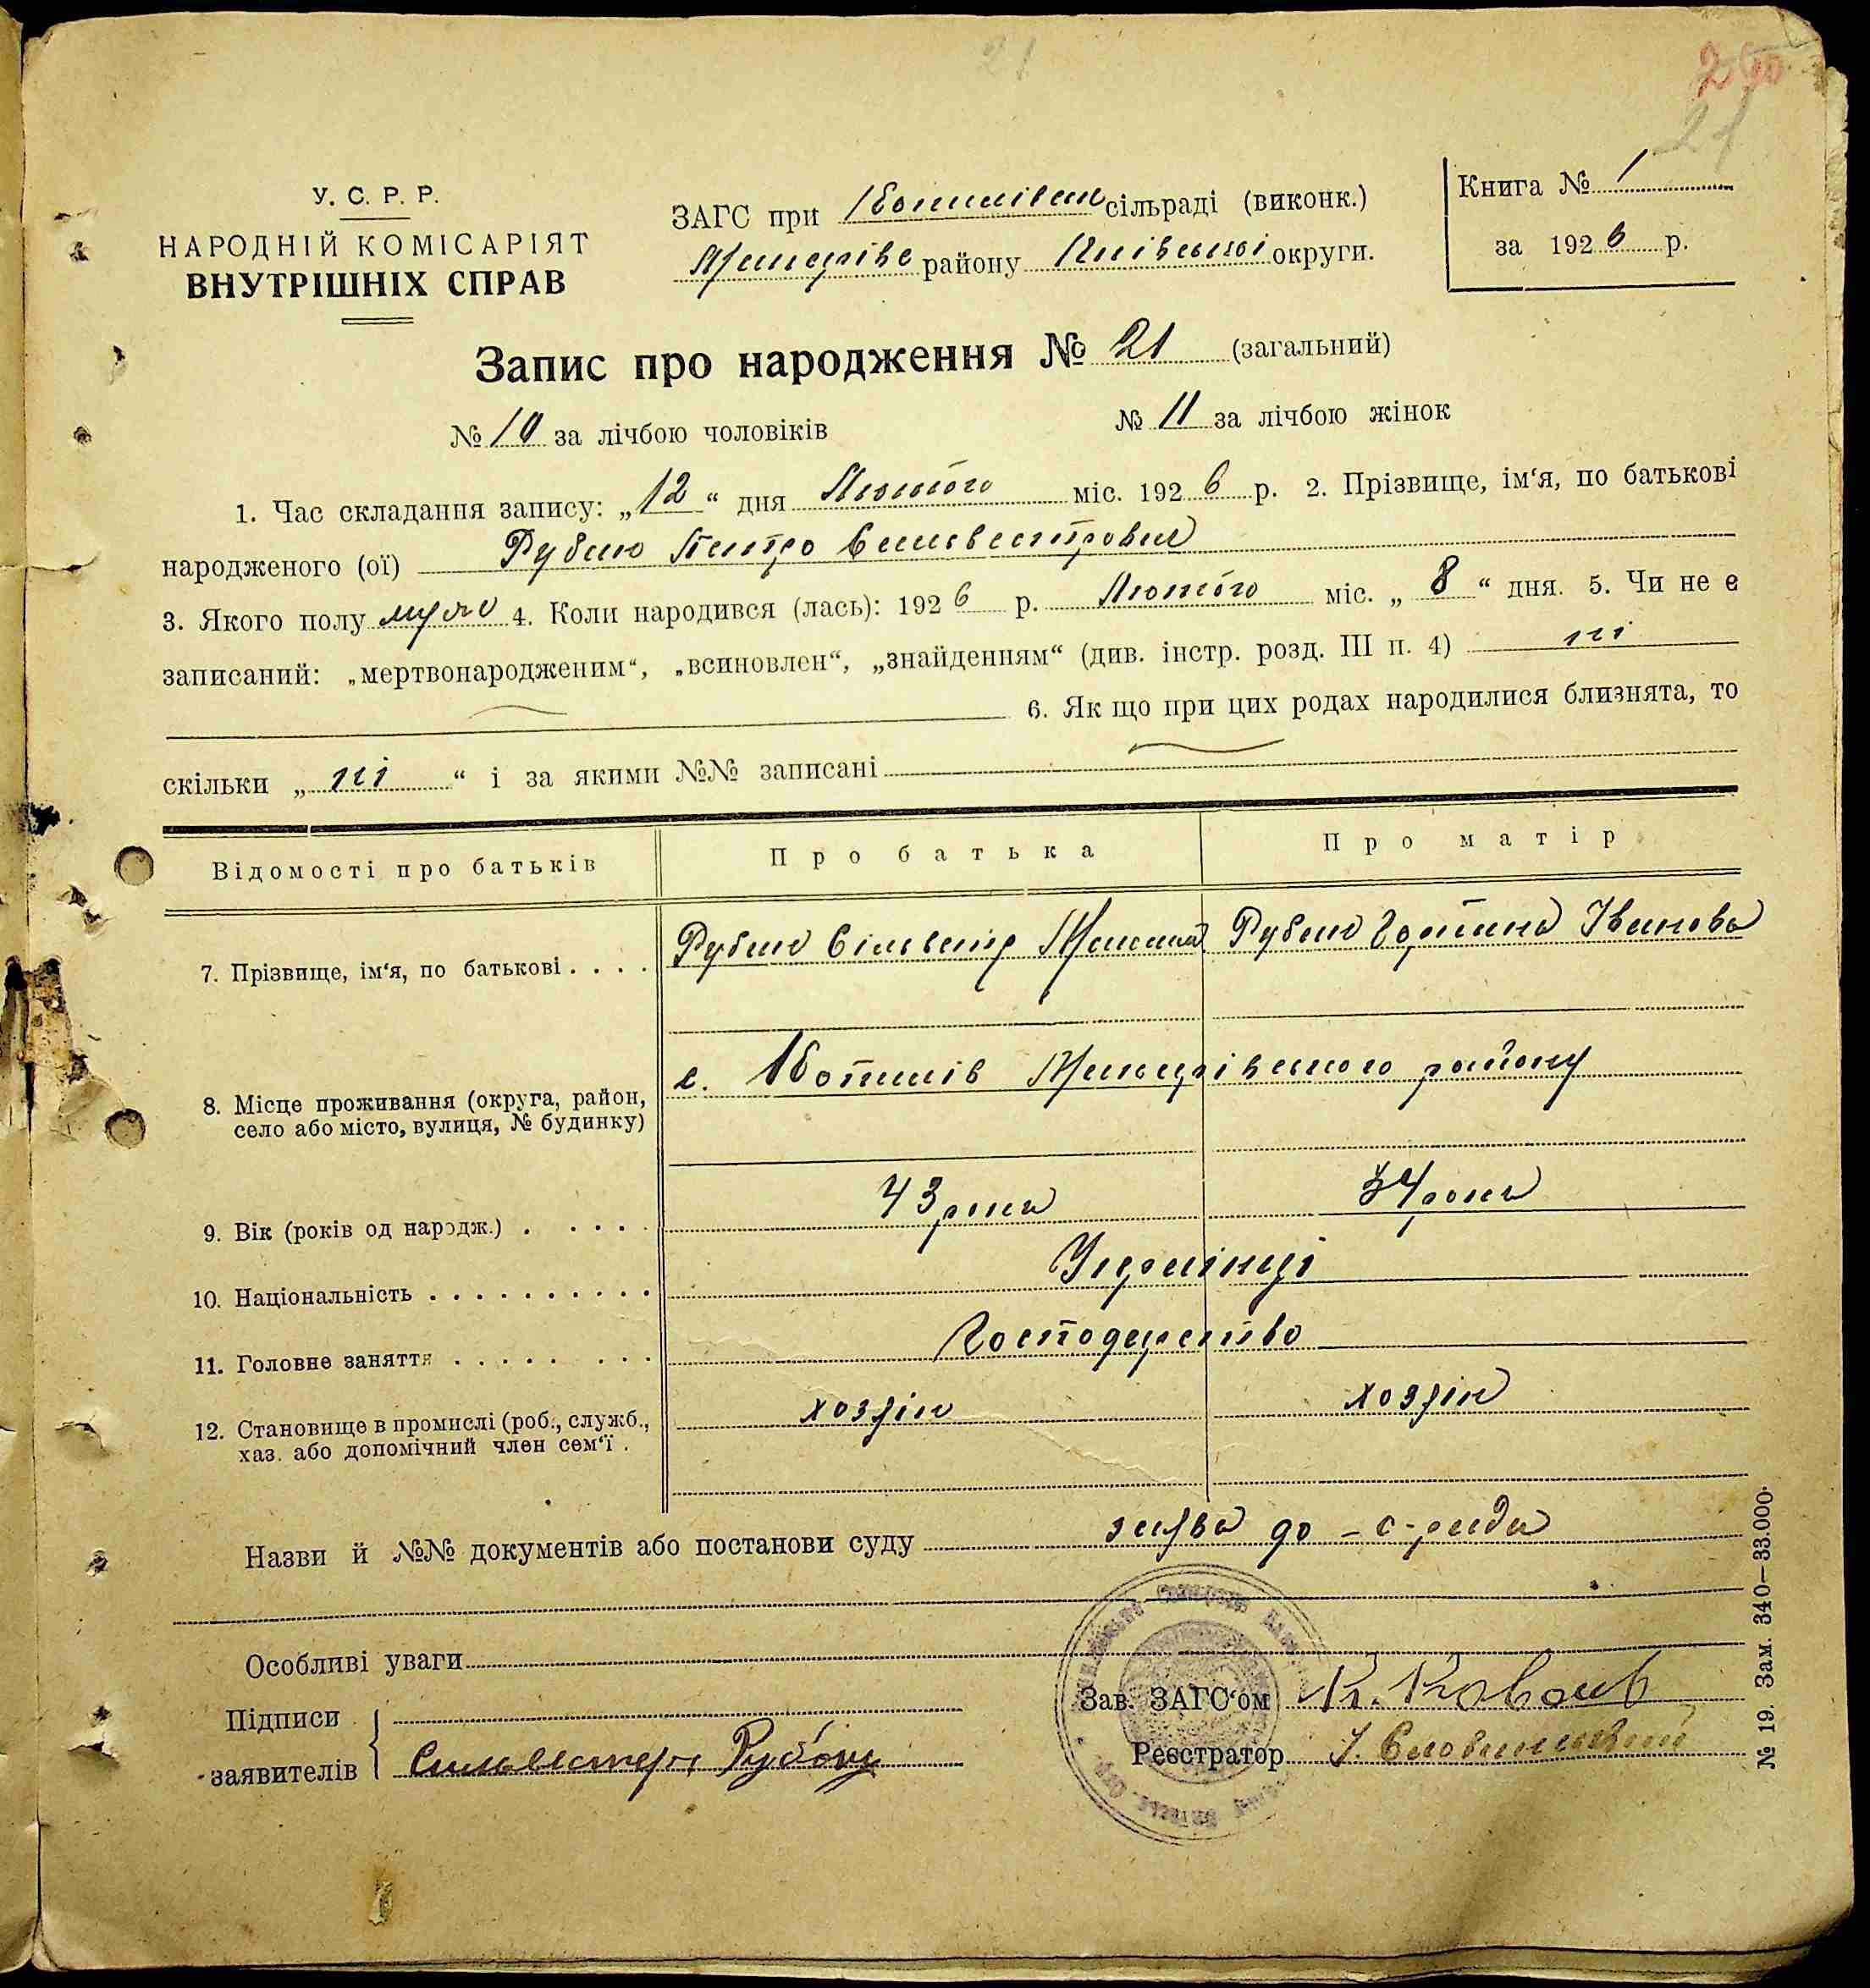 21
21
У. С. Р. Р.
НАРОДНІЙ КОМІСАРІЯТ
ВНУТРІШНІХ СПРАВ
ЗАГС при сільраді (виконк.)
району Київської округи.
Книга № 1
за 1926 р.
Запис про народження № 21 (загальний)
№ 10 за лічбою чоловіків № 11 за лічбою жінок
1. Час складання запису: „12“ дня Лютого міс. 1926 р. 2. Прізвище, ім‘я, по батькові
народженого (ої) Рубан Петро Сильвестрович
3. Якого полу муж 4. Коли народився (лась): 1926 р. Лютого міс. „8“ дня. 5. Чи не є
записаний: „мертвонародженим“, „всиновлен“, „знайденням“ (див. інстр. розд. III п. 4) ні
6. Як що при цих родах народилися близнята, то
скільки „ні“ і за якими №№ записані
Відомості про батьків Про батька Про матір
7. Прізвище, ім‘я, по батькові . . . . Рубан Сільвестр Рубан Іванова
8. Місце проживання (округа, район,
село або місто, вулиця, № будинку)
с. району
9. Вік (років од народж.) . . . . . 43 роки 34 роки
10. Національність . . . . . . . . . . Українці
11. Головне заняття . . . . . . . . Господарство
12. Становище в промислі (роб., служб.,
хаз. або допомічний член сем‘ї .
хозяін хозяін
Назви й №№ документів або постанови суду заява до с-ради
Особливі уваги
Підписи
заявителів
Сильвестер Рубан
Зав. ЗАГС‘ом К. Коваль
Реєстратор
№ 19. Зам. 340—33.000.